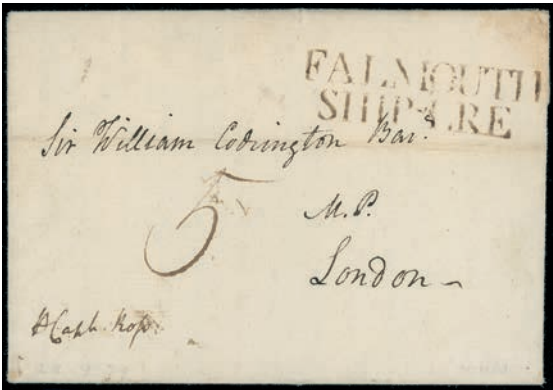 FALMOUTH
SHIP LRE
Sir William Codrington Bar.^t
5
M.P.
London
Capt. Ross